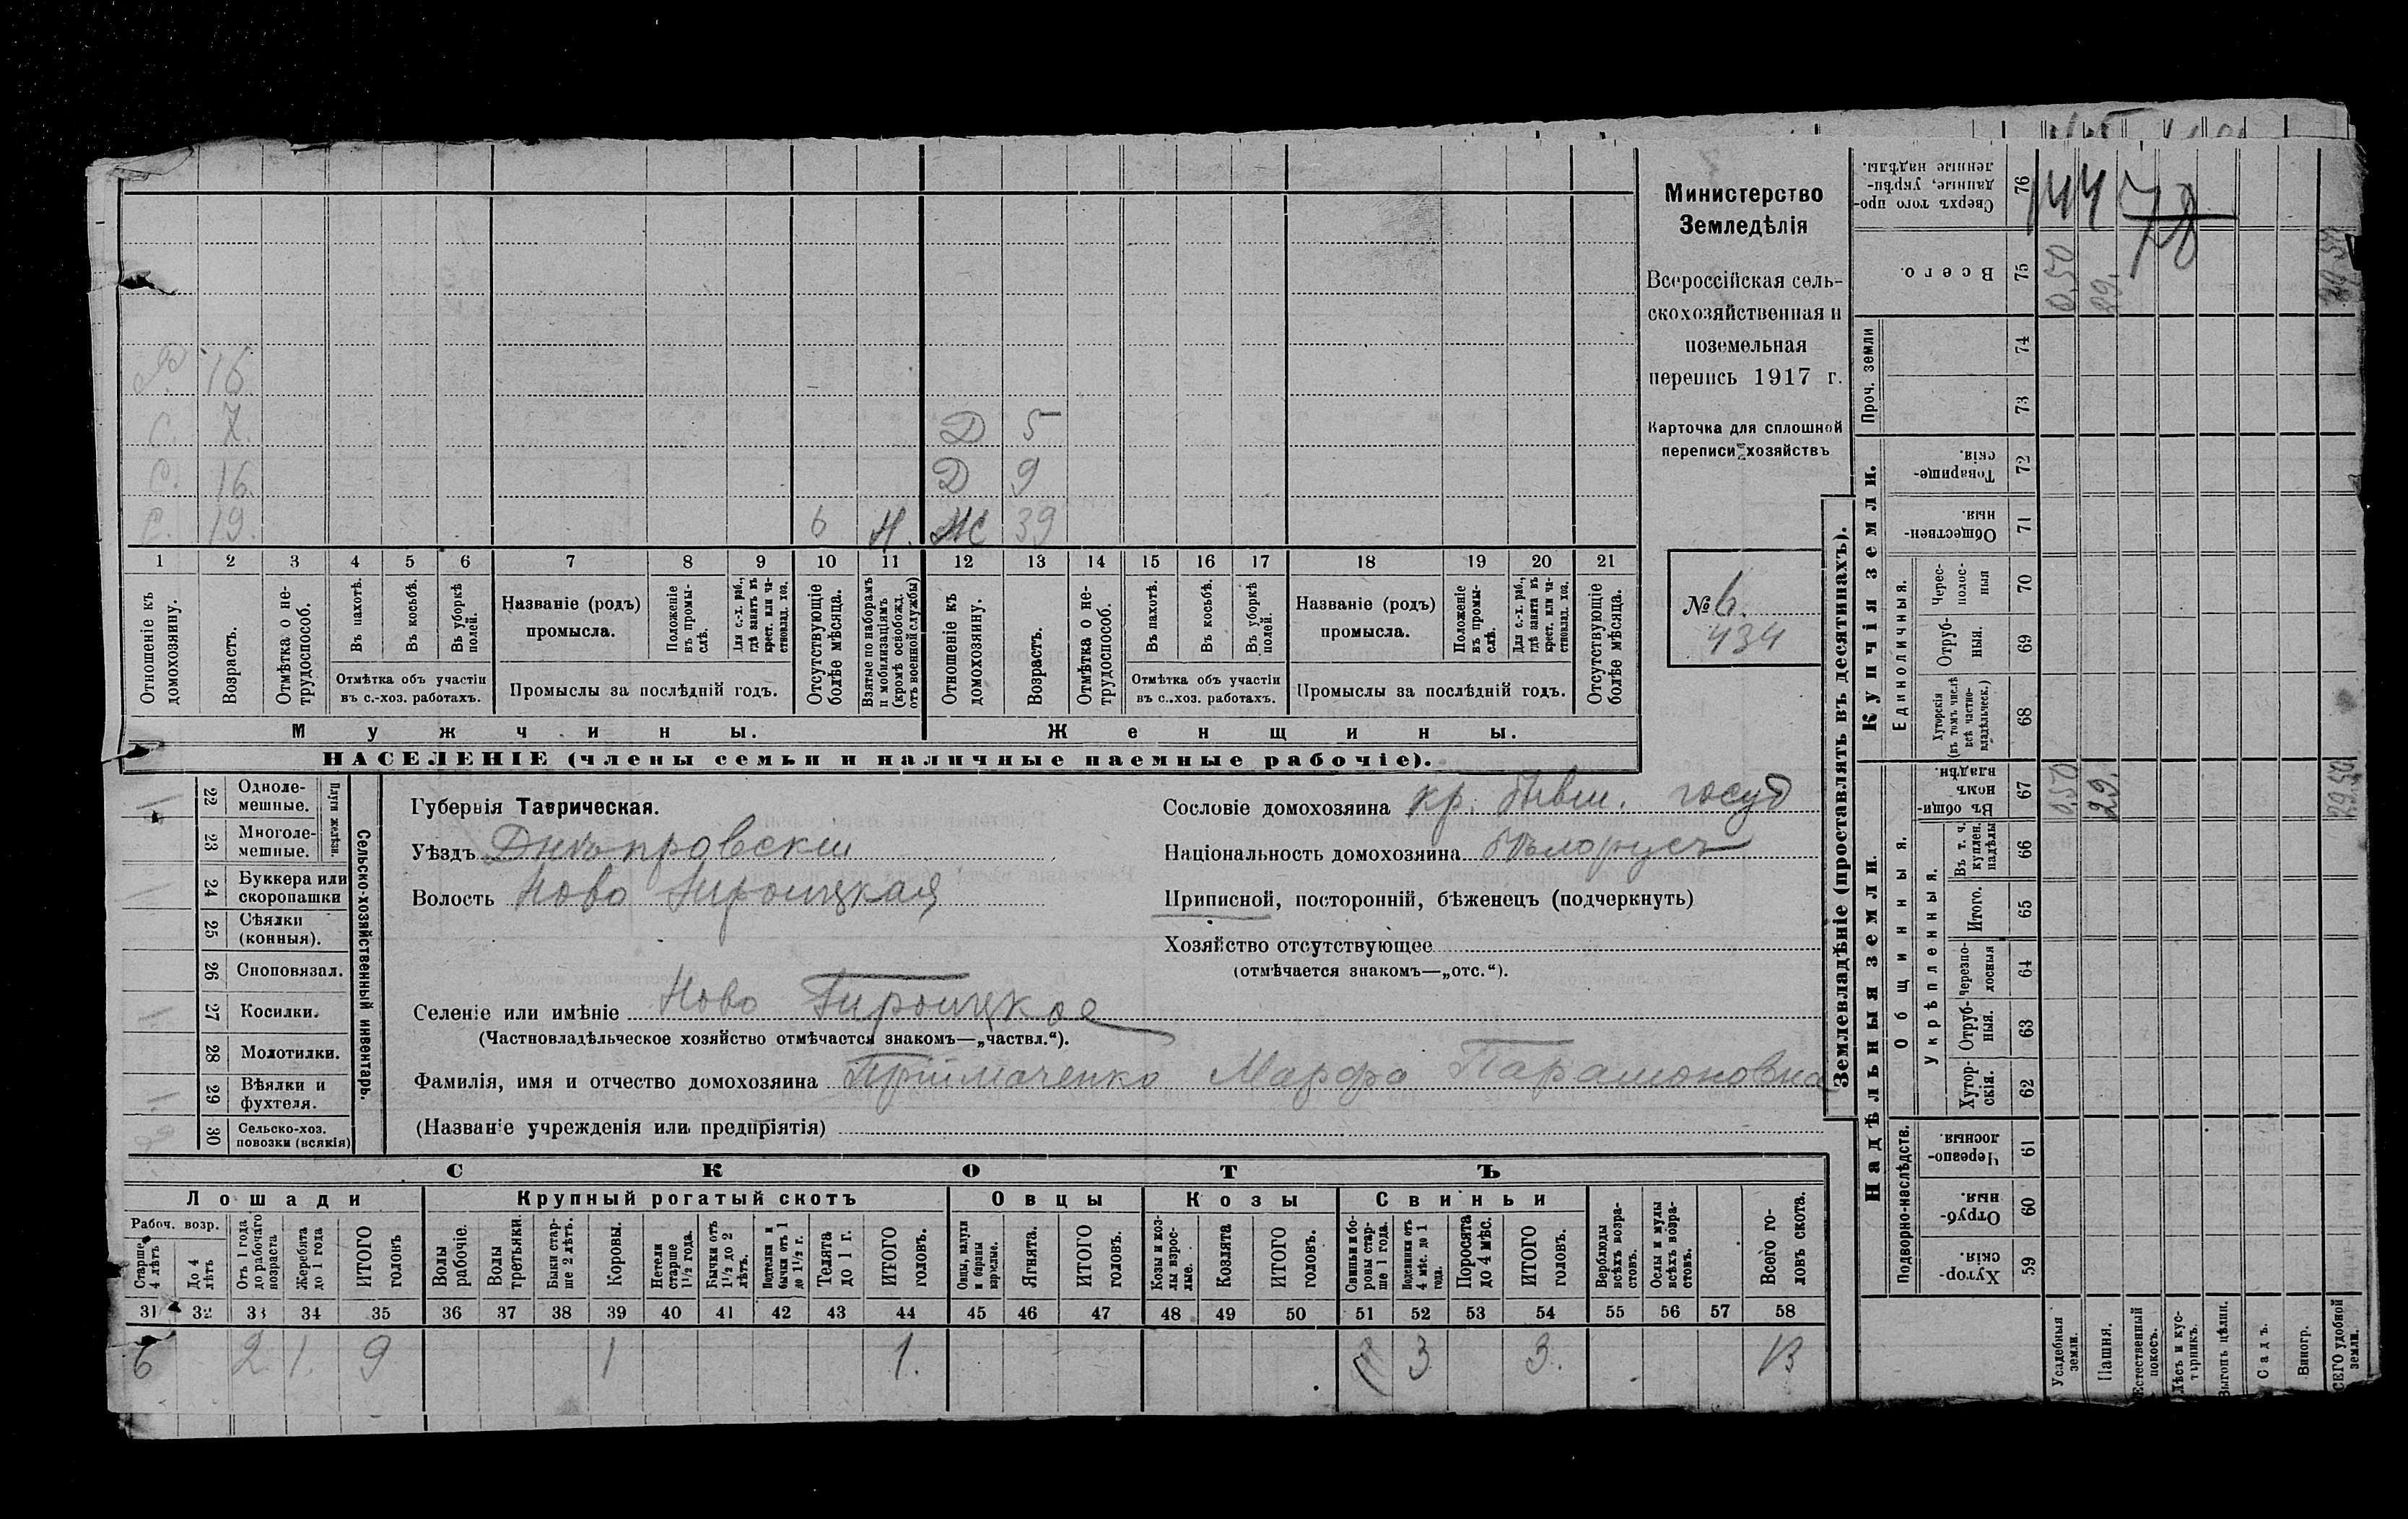 Министерство
Земледѣлія
Всероссійская сель-
скохозяйственная и
поземельная
перепись 1917 г.
Карточка для сплошной
переписи хозяйствъ
№ 6.
434
144
78
16
С. 7. Д 5
С. 16. Д 9
С. 19. 6 Н. Ж 39
1 2 3 4 5 6 7 8 9 10 11 12 13 14 15 16 17 18 19 20 21
Отношеніе къ домохозяину.
Возрастъ.
Отмѣтка о не-трудоспособ.
Въ пахотѣ.
Въ косьбѣ.
Въ уборкѣ полей.
Отмѣтка объ участіи въ с.-хоз. работахъ.
Названіе (родъ) промысла.
Положеніе въ промы-слѣ.
Для с.-х. раб., гдѣ занятъ въ крест. или ча-стновлад. хоз.
Промыслы за послѣдній годъ.
Отсутствующіе болѣе мѣсяца.
Взятые по наборамъ и мобилизаціямъ (кромѣ освобожд. отъ военной службы)
Отношеніе къ домохозяину.
Возрастъ.
Отмѣтка о не-трудоспособ.
Въ пахотѣ.
Въ косьбѣ.
Въ уборкѣ полей.
Отмѣтка объ участіи въ с.-хоз. работахъ.
Названіе (родъ) промысла.
Положеніе въ промы-слѣ.
Для с.-х. раб., гдѣ занята въ крест. или ча-стновлад. хоз.
Промыслы за послѣдній годъ.
Отсутствующіе болѣе мѣсяца.
Мужчины. Женщины.
НАСЕЛЕНІЕ (члены семьи и наличные наемные рабочіе).
22 Одноле-мешные.
23 Многоле-мешные.
Плуги желѣзн.
24 Буккера или скоропашки
25 Сѣялки (конныя).
26 Сноповязал.
27 Косилки.
28 Молотилки.
29 Вѣялки и фухтеля.
30 Сельско-хоз. повозки (всякія)
Сельско-хозяйственный инвентарь.
Губернія Таврическая.
Уѣздъ Днѣпровскій
Волость Ново Троицкая
Селеніе или имѣніе Ново Троицкое
(Частновладѣльческое хозяйство отмѣчается знакомъ—„частвл.“).
Фамилія, имя и отчество домохозяина Приймаченко Марфа Парамоновна
(Названіе учрежденія или предпріятія)
Сословіе домохозяина кр. бывш. госуд
Національность домохозяина бѣлорусъ
Приписной, посторонній, бѣженецъ (подчеркнуть)
Хозяйство отсутствующее
(отмѣчается знакомъ—„отс.“).
СКОТЪ
Лошади Крупный рогатый скотъ Овцы Козы Свиньи
Рабоч. возр.
Старше 4 лѣтъ
До 4 лѣтъ
Отъ 1 года до рабочаго возраста
Жеребята до 1 года
ИТОГО головъ
Волы рабочіе.
Волы третьяки.
Быки стар-ше 2 лѣтъ.
Коровы.
Нетели старше 1½ года.
Бычки отъ 1½ до 2 лѣтъ.
Подтелки и бычки отъ 1 до 1½ г.
Телята до 1 г.
ИТОГО головъ.
Овцы, валухи и бараны взрослые.
Ягнята.
ИТОГО головъ.
Козы и коз-лы взрос-лые.
Козлята
ИТОГО головъ.
Свиньи и бо-ровы стар-ше 1 года.
Подсвинки отъ 4 мѣс. до 1 года.
Поросята до 4 мѣс.
ИТОГО головъ.
Верблюды всѣхъ возра-стовъ.
Ослы и мулы всѣхъ возра-стовъ.
Всего го-ловъ скота.
31 32 33 34 35 36 37 38 39 40 41 42 43 44 45 46 47 48 49 50 51 52 53 54 55 56 57 58
6 2 1. 9 1 1. 3 3. 13
Землевладѣніе (проставлять въ десятинахъ).
Надѣльныя земли. Купчія земли. Проч. земли
Подворно-наслѣдств.
Общинныя.
Укрѣпленныя.
Единоличныя.
59 Хутор-скія.
60 Отруб-ныя.
61 Черезпо-лосныя.
62 Хутор-скія.
63 Отруб-ныя.
64 Черезпо-лосныя
65 Итого.
66 Въ т. ч. куплен. надѣлы
67 Въ общи-номъ владѣн.
68 Хуторскія (въ томъ числѣ всѣ частно-владѣльческ.)
69 Отруб-ныя.
70 Черес-полос-ныя
71 Обществен-ныя.
72 Товарище-скія.
73
74
75 Всего.
76 Сверхъ того про-данные, укрѣп-ленные надѣлы.
Усадебная земли. 0,50 0,50
Пашня. 29. 29.
Естественный покосъ.
Лѣсъ и кус-тарникъ.
Выгонъ цѣлин.
Садъ.
Виногр.
ВСЕГО удобной земли. 29.50 29.50